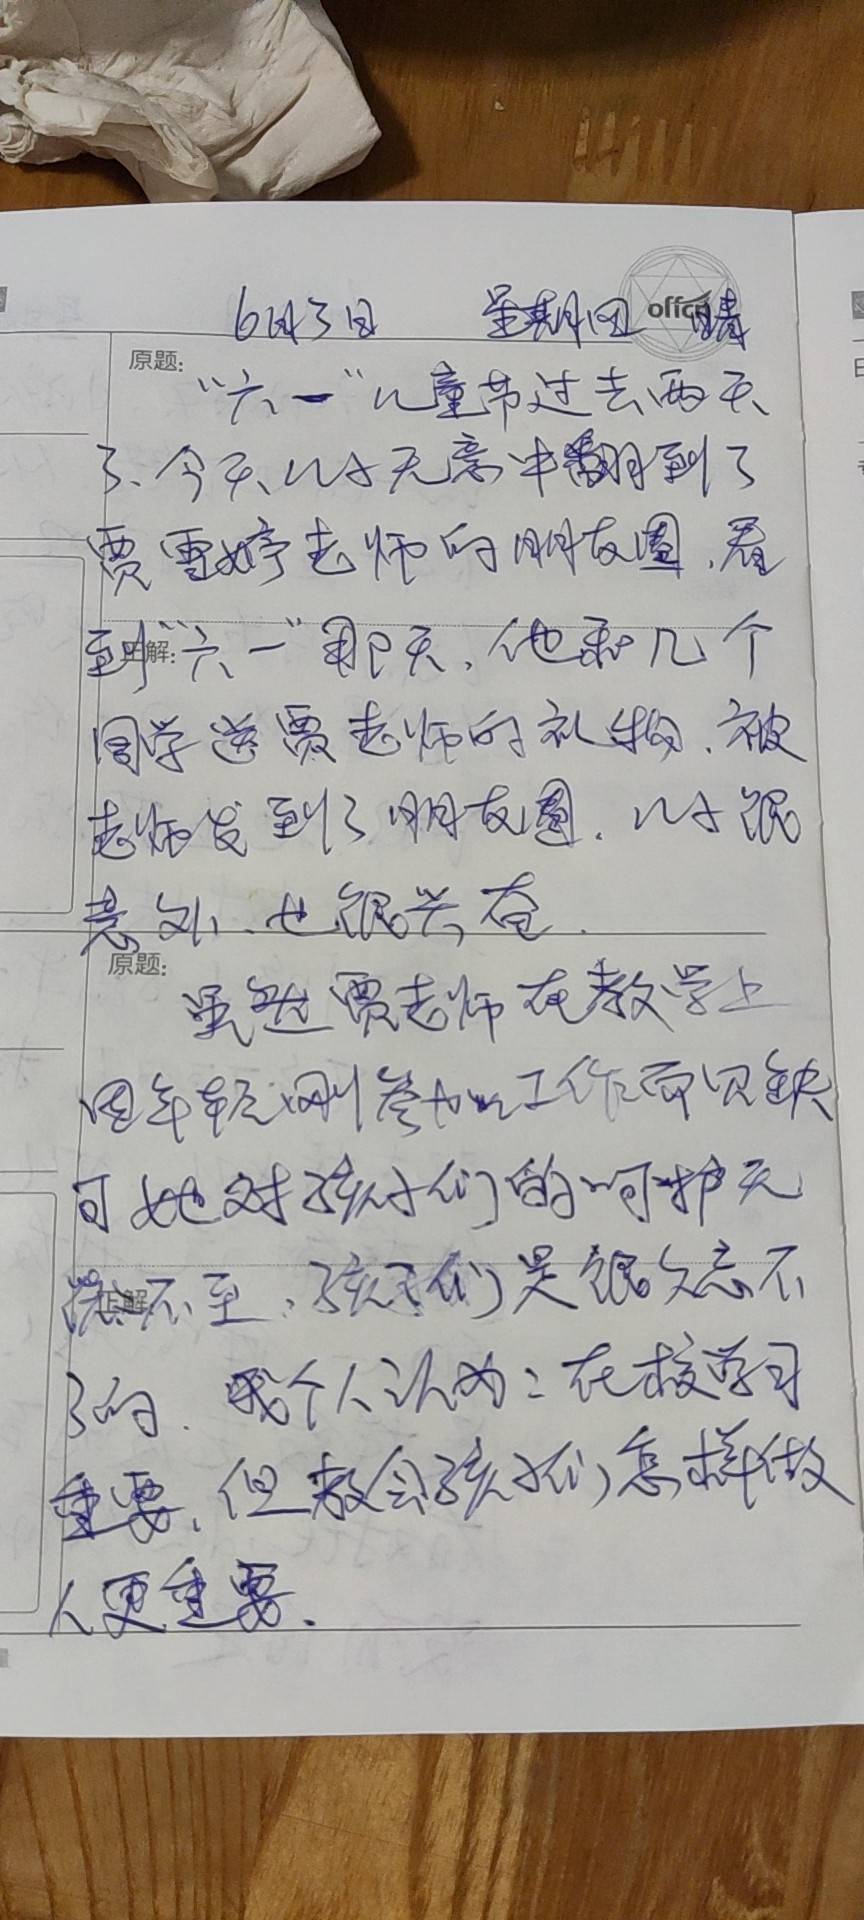 6月3日 星期四 晴
offcn
原题:
“六一”儿童节过去两天
了、今天、儿子无意中翻到了
贾雪婷老师的朋友圈,看
到“六一”那天,他和几个
正解:
同学送贾老师的礼物,被
老师发到了朋友圈.儿子很
意外、也很兴奋.
原题:
虽然贾老师在教学上
因年轻、刚参加工作而欠缺
可她对孩子们的呵护无
微不至,孩子们是很久忘不
正解
了的.我个人认为:在校学习
重要,但教会孩子们怎样做
人更重要.